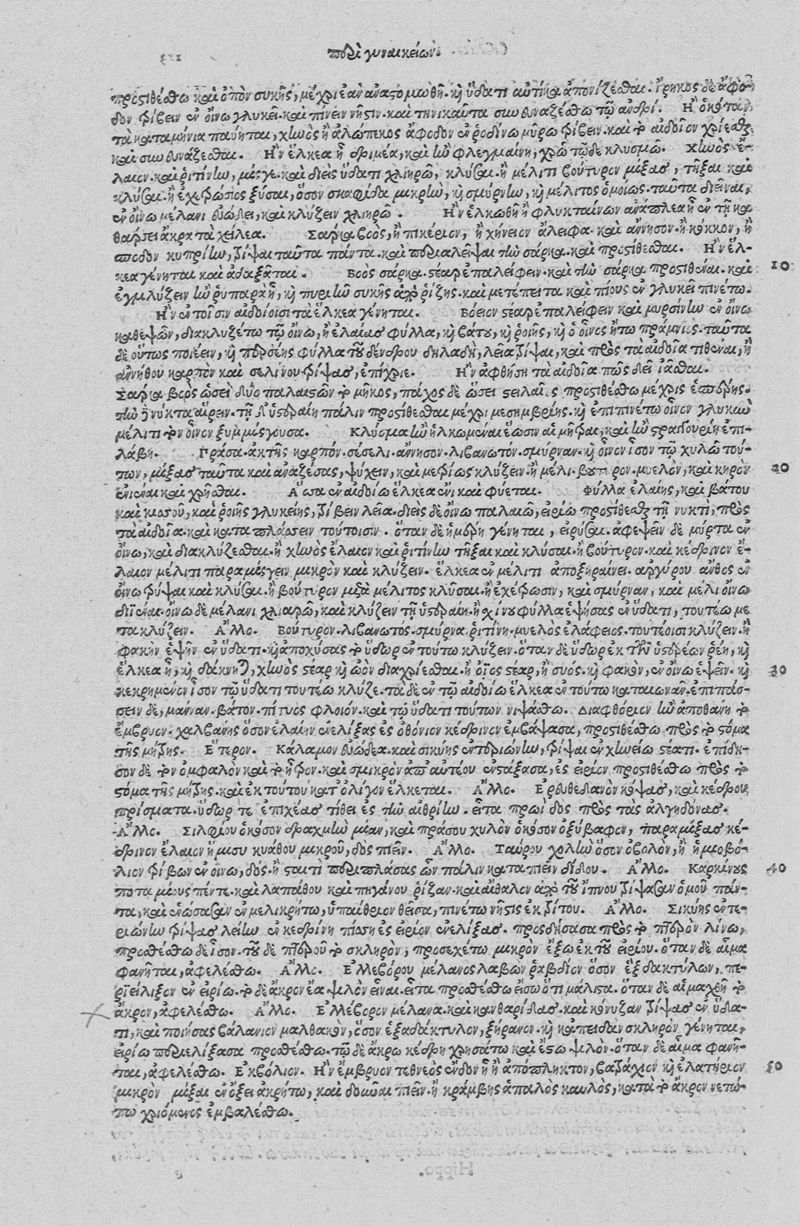 περὶ γυναικείων.
προστιθέσθω καὶ ὀπὸν συκῆς, μέχρι ἐὰν ἀναστομωθῇ. καὶ ὕδατι αὐτίκα ἀπονίζεσθαι.
δον τρίβειν ἐν οἴνῳ γλυκεῖ. καὶ πίνειν νῆστιν. καὶ τηνικαῦτα συνδυναζέσθω τῷ ἀνδρί. Ἢν ὁκόταν
τὰ καταμήνια παύηται, χηνὸς ἢ ἀλώπεκος ἄφοδον ἐν ῥοδίνῳ μύρῳ τρίβειν. καὶ τὸ αἰδοῖον χρίεσθαι
καὶ συνδυναζέσθαι. Ἢν ἕλκεα ᾖ δριμέα, καὶ ἢν φλεγμαίνῃ, χρῶ τῷδε κλυσμῷ. Χηνὸς ἔ-
λαιον καὶ ῥητίνην, μίσγε. καὶ διεὶς ὕδατι χλιηρῷ, κλύσαι ἢ μέλιτι βούτυρον μίξας, τῆξαι καὶ
κλύσαι. ἢ ἐχεφώσιος ξύσαι, ὅσον σκαφίδα μικρὴν, καὶ σμύρνην, καὶ μέλιτος ὁμοίως. ταῦτα διεῖναι,
ἐν οἴνῳ μέλανι εὐώδει, καὶ κλύζειν χλιηρῷ. Ἢν ἑλκωθῇ ἢ φλυκταινῶν ἀνάπλεα ᾖ ἐν τῇ κα
θάρσει ἄκρα τὰ χείλεα. Σάρκα βοὸς, ἢ πικέριον, ἢ χήνειον ἄλειφα καὶ ἄννησον. ἢ κρόκον, ἢ
σποδὸν κυπρίην, τρίψαι ταῦτα πάντα. καὶ περιαλεῖψαι τὴν σάρκα. καὶ προστιθέσθαι. Ἢν ἕλ-
κεα γένηται καὶ ὀδαξᾶται. Βοὸς σάρκα. στέαρ ἐπαλείφειν. καὶ τὴν σάρκα προστιθέναι. καὶ 10
ἐγκλύζειν ἢν ῥυπαρὰ ᾖ, καὶ πυριῆν συκῆς ἀπὸ ῥίζης. καὶ μετέπειτα καὶ πίσυς ἐν γλυκεῖ πινέτω.
Ἢν ἐν τοῖσιν αἰδοίοισι τὰ ἕλκεα γένηται. Βόειον στέαρ ἐπαλείφειν καὶ μυρσίνην ἐν οἴνῳ
καθεψῶν, διακλυζέτω τῷ οἴνῳ, ἢ ἐλαίας φύλλα, καὶ βάτου, καὶ ῥοιῆς, καὶ ὁ οἶνος ἤτω πράμνιος. ταῦτα
δὲ οὕτως ποιέειν, καὶ περσέης φύλλα τοῦ δένδρου δηλαδὴ, λεῖα τρίψαι, καὶ πρὸς τὰ αἰδοῖα τιθέναι, ἢ
ἀννήθου καρπὸν καὶ σελίνου τρίψας, ἐπίχριε. Ἢν ἀφθήσῃ τὰ αἰδοῖα πῶς δεῖ ἰᾶσθαι.
Σάρκα βοὸς ὡσεὶ δύο παλαιστῶν τὸ μῆκος, πάχος δὲ ὡσεὶ στειλαιῆς προστιθέσθω μέχρις ἑσπέρης.
τὴν δὲ νύκτα αἴρειν. τῇ δ' ὑστεραίῃ πάλιν προστίθεσθαι μέχρι μεσημβρίης. καὶ ἐπιπινέτω οἶνον γλυκὺν
μέλιτι τὸν οἶνον ξυμμίσγουσα. Κλύσμα ἢν ἡλκωμέναι ἔωσιν αἱ μῆτραι, καὶ ἢν στραγγουρίη ἐπι-
λάβῃ. Πράσα. ἀκτῆς καρπόν. σέσελι. ἄννησον. λιβανωτόν. σμύρναν. καὶ οἶνον ἶσον τῷ χυλῷ τού-
των, μίξας ταῦτα καὶ ἀναζέσας, ψύχειν, καὶ μεθιεὶς κλύζειν. ἢ μέλι. βούτυρον. μυελὸν, καὶ κηρὸν 20
ἐνιέναι καὶ χρῆσθαι. Ἅσσα ἐν αἰδοίῳ ἕλκεα ἐνὶ καὶ φύεται. Φύλλα ἐλαίης, καὶ βάτου
καὶ κισσοῦ, καὶ ῥοιῆς γλυκείης, τρίβειν λεῖα. διεὶς δὲ οἴνῳ παλαιῷ, εἰρίῳ προστίθεσθαι τῇ νυκτὶ, πρὸς
τὰ αἰδοῖα. καὶ καταπλάσσειν τούτοισιν. ὅταν δὲ ἡμέρη γένηται, εἰρύσαι. ἀφέψειν δὲ μύρτα ἐν
οἴνῳ, καὶ διακλύζεσθαι. ἢ χηνὸς ἔλαιον καὶ ῥητίνην τῆξαι καὶ κλύσαι. ἢ βούτυρον. καὶ κέδρινον ἔ-
λαιον μέλιτι παραμίσγειν μικρὸν καὶ κλύζειν. ἕλκεα ἐν μέλιτι ἀποξηραίνει. ἀργύρου ἄνθος ἐν
οἴνῳ τρίψαι καὶ κλύσαι. ἢ βούτυρον μετὰ μέλιτος κλῦσαι. ἢ ἐχέφωσιν, καὶ σμύρναν, καὶ μέλι οἴνῳ
διεῖναι. οἴνῳ δὲ μέλανι χλιαρῷ, καὶ κλύζειν τῇ ὑστεραίῃ. ἢ σχίνου φύλλα ἑψήσας ἐν ὕδατι, τουτέῳ με
τακλύζειν. Ἄλλο. Βούτυρον. λιβανωτός. σμύρνα. ῥητίνη. μυελὸς ἐλάφειος. τουτέοισι κλύζειν. ἢ
φακὴν ἑψεῖν ἐν ὕδατι. καὶ ἀποχέας τὸ ὕδωρ ἐν τούτῳ κλύζειν. ὅταν δὲ ὕδωρ ἐκ τῶν ὑστερέων ῥέῃ, καὶ
ἕλκεα ᾖ, καὶ δάκνηται, χηνὸς στέαρ καὶ ὠὸν διαχρίεσθαι. ἢ ὄϊος στέαρ, ἢ συός. καὶ φακὸν, ἐν οἴνῳ ἑψεῖν. καὶ 30
κεκρημένον ἶσον τῷ ὕδατι τουτέῳ κλύζε. τὰ δὲ ἐν τῷ αἰδοίῳ ἕλκεα ἐν τούτῳ καταιωνᾶν. ἐπιπάσ-
σειν δὲ, μάνναν. βάτον. πίτυος φλοιόν. καὶ τῷ ὕδατι τούτων νιψάσθω. Διαφθόριον ἢν ἀποθάνῃ τὸ
ἔμβρυον. χαλβάνης ὅσον ἐλαίην ἐνελίξας ἐς ὀθόνιον κέδρινον ἐμβάψασα, προστιθέσθω πρὸς τὸ στόμα
τῆς μήτρης. Ἕτερον. Κάλαμον εὐώδεα. καὶ σικύης ἐντεριώνην, τρίψαι ἐν χηνείῳ στέατι. ἐπίδη-
σον δὲ τὸν ὀμφαλὸν καὶ τὸ ἦτρον. καὶ σμικρὸν ἀπ' αὐτέου ἐνστάξασα, ἐς εἰρίον προστιθέσθω πρὸς τὸ
στόμα τῆς μήτρης. καὶ ἐκ τούτου κατ' ὀλίγον ἕλκεται. Ἄλλο. Ἐρυθεδανὸν κόψας, καὶ κέδρου
πρίσματα. ὕδωρ τε ἐπιχέας τίθει ἐς τὴν αἰθρίην. εἶτα πρωῒ δὸς πρὸς τὰς ἀλγηδόνας.
Ἄλλο. Σιλφίου ὁκόσον δραχμὴν μίαν, καὶ πράσου χυλὸν ὁκόσον ὀξύβαφον, παραμίξας κέ-
δρινον ἔλαιον ἥμισυ κυάθου μικροῦ, δὸς πιεῖν. Ἄλλο. Ταύρου χολὴν ὅσον ὀβολὸν, ἢ ἡμιοβό-
λιον τρίβων ἐν οἴνῳ, δός. ἢ σταιτὶ περιπλάσας ὧν πάλιν καταπιεῖν δίδου. Ἄλλο. Καρκίνους 40
ποταμίους πέντε. καὶ λαπάθου καὶ πηγάνου ῥίζαν. καὶ αἰθάλην ἀπὸ τοῦ ἰπνοῦ τρίψασαν ὁμοῦ πάν-
τα, καὶ ἑνώσασαν ἐν μελικρήτῳ, ὑπαίθριον θεῖσα, πινέτω νῆστις ἐκ τρίτου. Ἄλλο. Σικύης ἐντε-
ριώνην τρίψας λείην ἐν κεδρίνῃ πίσσῃ ἐς εἰρίον ἐνελίξας. προσδήσασα πρὸς τὸ πτερὸν λίνῳ,
προσθέσθω δὲ ἶσον. τοῦ δὲ πτεροῦ τὸ σκληρὸν, προσεχέτω μικρὸν ἔξω ἐκ τοῦ εἰρίου. ὅταν δὲ αἷμα
φανῆται, ἀφελέσθω. Ἄλλο. Ἐλλεβόρου μέλανος λαβὼν ῥαβδίον ὅσον ἓξ δακτύλων, πε-
ριείλιξον ἐν εἰρίῳ. τὸ δὲ ἄκρον ἔα ψιλὸν εἶναι. εἶτα προσθέσθω εἴσω ὅτι μάλιστα. ὅταν δὲ αἱμαχθῇ τὸ
ἄκρον, ἀφελέσθω. Ἄλλο. Ἐλλέβορον μέλανα. καὶ κανθαρίδας. καὶ κόνυζαν τρίψας ἐν ὕδα-
τι, καὶ ποιήσας βαλάνιον μαλθακὸν, ὅσον ἑξαδάκτυλον, ξήρανον. καὶ κἄπειδαν σκληρὸν γένηται,
εἰρίῳ περιελίξασα προσθέσθω. τῷ δὲ ἄκρῳ κέδρῃ χρησάτω καὶ ἔστω ψιλόν. ὅταν δὲ αἷμα φανῆ-
ται, ἀφελέσθω. Ἐκβόλιον. Ἢν ἔμβρυον τεθνεὸς ἔνδον ᾖ ἢ ἀπόπληκτον, βατράχιον καὶ ἐλατήριον 50
μικρὸν μίξαι ἐν ὄξει ἀκρήτῳ, καὶ δοῦναι πιεῖν. ἢ κράμβης ἁπαλὸς καυλὸς, κατὰ τὸ ἄκρον νετώ-
πῳ χριόμενος ἐμβαλέσθω.